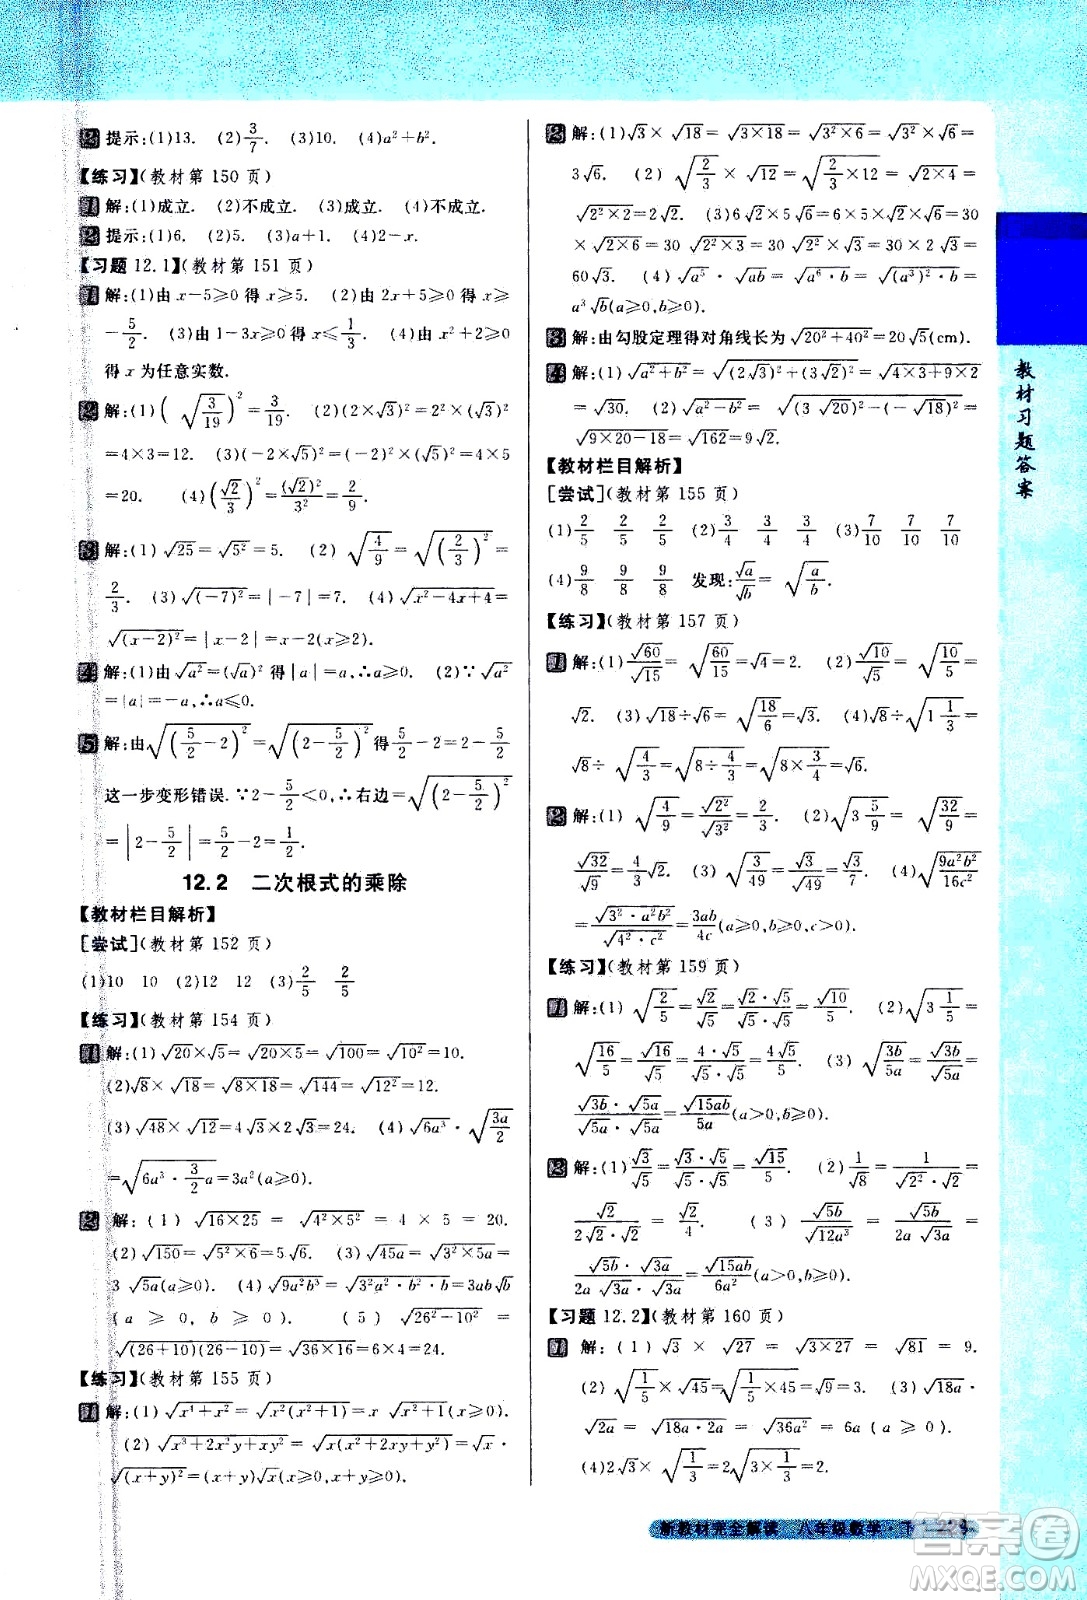 2 提示:(1)13. (2)3/7. (3)10. (4)a²+b².
【练习】(教材第 150 页)
1 解:(1)成立. (2)不成立. (3)成立. (4)不成立.
2 提示:(1)6. (2)5. (3)a+1. (4)2-x.
【习题 12.1】(教材第 151 页)
1 解:(1)由 x-5≥0 得 x≥5. (2)由 2x+5≥0 得 x≥
-5/2. (3)由 1-3x≥0 得 x≤1/3. (4)由 x²+2≥0
得 x 为任意实数.
2 解:(1)(√(3/19))²=3/19. (2)(2×√3)²=2²×(√3)²
=4×3=12. (3)(-2×√5)²=(-2)²×(√5)²=4×5
=20. (4)(√2/3)²=(√2)²/3²=2/9.
3 解:(1)√25=√5²=5. (2)√(4/9)=√((2/3)²)=
2/3. (3)√((-7)²)=|-7|=7. (4)√(x²-4x+4)=
√((x-2)²)=|x-2|=x-2(x≥2).
4 解:(1)由√a²=(√a)²得|a|=a,∴a≥0. (2)∵√a²
=|a|=-a,∴a≤0.
5 解:由√((5/2-2)²)=√((2-5/2)²)得5/2-2=2-5/2
这一步变形错误.∵2-5/2<0,∴右边=√((2-5/2)²)
=|2-5/2|=5/2-2=1/2.
12.2 二次根式的乘除
【教材栏目解析】
[尝试](教材第 152 页)
(1)10 10 (2)12 12 (3)2/5 2/5
【练习】(教材第 154 页)
1 解:(1)√20×√5=√(20×5)=√100=√10²=10.
(2)√8×√18=√(8×18)=√144=√12²=12.
(3)√48×√12=4√3×2√3=24. (4)√6a³·√(3a/2)
=√(6a³·(3/2)a)=3a²(a≥0).
2 解:(1)√(16×25)=√(4²×5²)=4×5=20.
(2)√150=√(5²×6)=5√6. (3)√45a=√(3²×5a)=
3√5a(a≥0). (4)√(9a²b³)=√(3²a²·b²·b)=3ab√b
(a≥0,b≥0). (5)√(26²-10²)=
√((26+10)(26-10))=√(36×16)=6×4=24.
【练习】(教材第 155 页)
1 解:(1)√(x⁴+x²)=√(x²(x²+1))=x√(x²+1)(x≥0).
(2)√(x³+2x²y+xy²)=√(x(x²+2xy+y²))=√x·
√((x+y)²)=(x+y)√x(x≥0,x+y≥0).
2 解:(1)√3×√18=√(3×18)=√(3²×6)=√3²×√6=
3√6. (2)√(2/3)×√12=√(2/3×12)=√(2×4)=
√(2²×2)=2√2. (3)6√8×5√6=30√(8×6)=30
√(2²×2×6)=60√(2×6)=60√(2²×3)=60×2√3=
60√3. (4)√a⁵·√ab=√(a⁶·b)=√((a³)²·b)=
a³√b(a≥0,b≥0).
3 解:由勾股定理得对角线长为√(20²+40²)=20√5(cm).
4 解:(1)√(a²+b²)=√((2√3)²+(3√2)²)=√(4×3+9×2)
=√30. (2)√(a²-b²)=√((3√20)²-(-√18)²)=
√(9×20-18)=√162=9√2.
【教材栏目解析】
[尝试](教材第 155 页)
(1)2/5 2/5 2/5 (2)3/4 3/4 3/4 (3)7/10 7/10 7/10
(4)9/8 9/8 9/8 发现:√a/√b=√(a/b).
【练习】(教材第 157 页)
1 解:(1)√60/√15=√(60/15)=√4=2. (2)√10/√5=√(10/5)=
√2. (3)√18÷√6=√(18/6)=√3. (4)√8÷√(1 1/3)=
√8÷√(4/3)=√(8÷4/3)=√(8×3/4)=√6.
2 解:(1)√(4/9)=√2²/√3²=2/3. (2)√(3 5/9)=√(32/9)=
√32/√9=4√2/3. (3)√(3/49)=√3/√49=√3/7. (4)√(9a²b²/16c²)=
√(3²·a²b²)/√(4²·c²)=3ab/4c(a≥0,b≥0,c>0).
【练习】(教材第 159 页)
1 解:(1)√(2/5)=√2/√5=√2·√5/√5·√5=√10/5. (2)√(3 1/5)=
√(16/5)=√16/√5=4·√5/√5·√5=4√5/5. (3)√(3b/5a)=√3b/√5a=
√3b·√5a/√5a·√5a=√15ab/5a(a>0,b≥0).
2 解:(1)√3/√5=√3·√5/√5·√5=√15/5. (2)1/√8=√2/√2²·√2·√2=
√2/2√2·√2=√2/4. (3)√5b/√12a³=√5b/2a√3a=
√5b·√3a/2a√3a·√3a=√15ab/6a²(a>0,b≥0).
【习题 12.2】(教材第 160 页)
1 解:(1)√3×√27=√(3×27)=√81=9.
(2)√(1/5)×√45=√(1/5×45)=√9=3. (3)√18a·
√2a=√(18a·2a)=√36a²=6a(a≥0).
(4)2√3×√(1/3)=2√(3×1/3)=2.
教材习题答案
新教材完全解读 八年级数学·下
答案卷
MXQE.COM